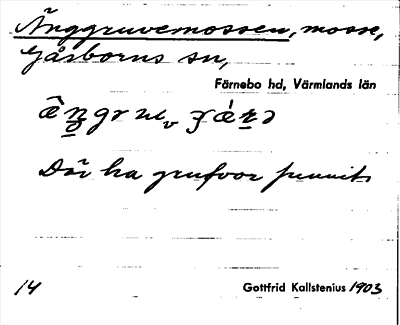 Änggruvemossen, mosse,
Gåsborns sn,
Färnebo hd, Värmlands län
Där ha grufvor funnits
14 Gottfrid Kallstenius 1903